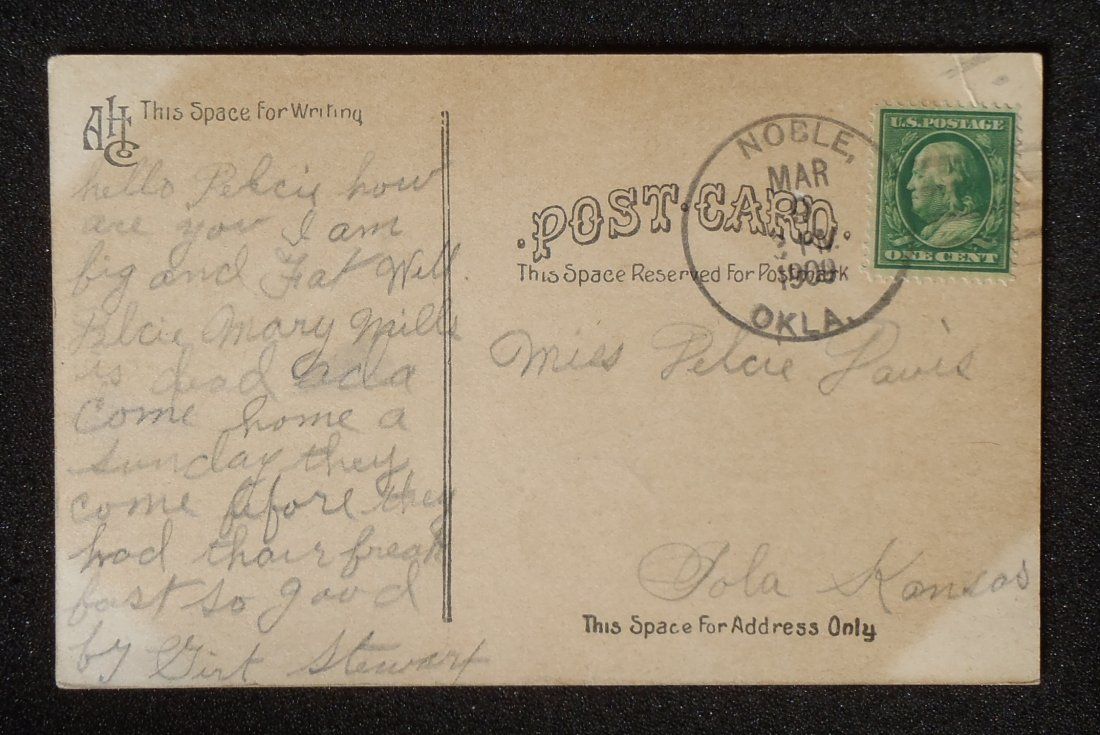 AHCo This Space For Writing
hello Pelcie how
are you I am
big and Fat Well
Pelcie Mary Mills
is dead ada
Come home a
Sunday they
come before they
had thair break
fast so good
by Girt Stewart
NOBLE,
MAR
1909
OKLA.
U.S. POSTAGE
ONE CENT
POST CARD.
This Space Reserved For Postmark
Miss Pelcie Davis
Iola Kansas
This Space For Address Only